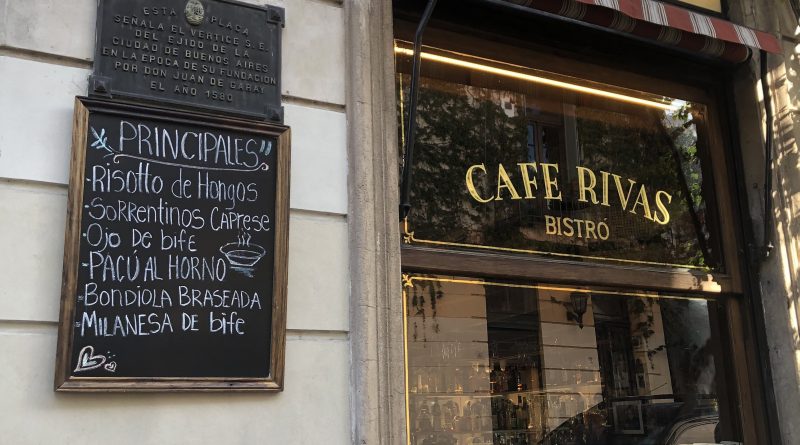 ESTA PLACA
SEÑALA EL VERTICE S.E.
DEL EJIDO DE LA
CIUDAD DE BUENOS AIRES
EN LA EPOCA DE SU FUNDACION
POR DON JUAN DE GARAY
EL AÑO 1580
PRINCIPALES"
-Risotto de Hongos
-Sorrentinos Caprese
-Ojo De bife
-PACÚ AL HORNO
-Bondiola BRASEADA
-Milanesa de bife
CAFE RIVAS
BISTRÓ